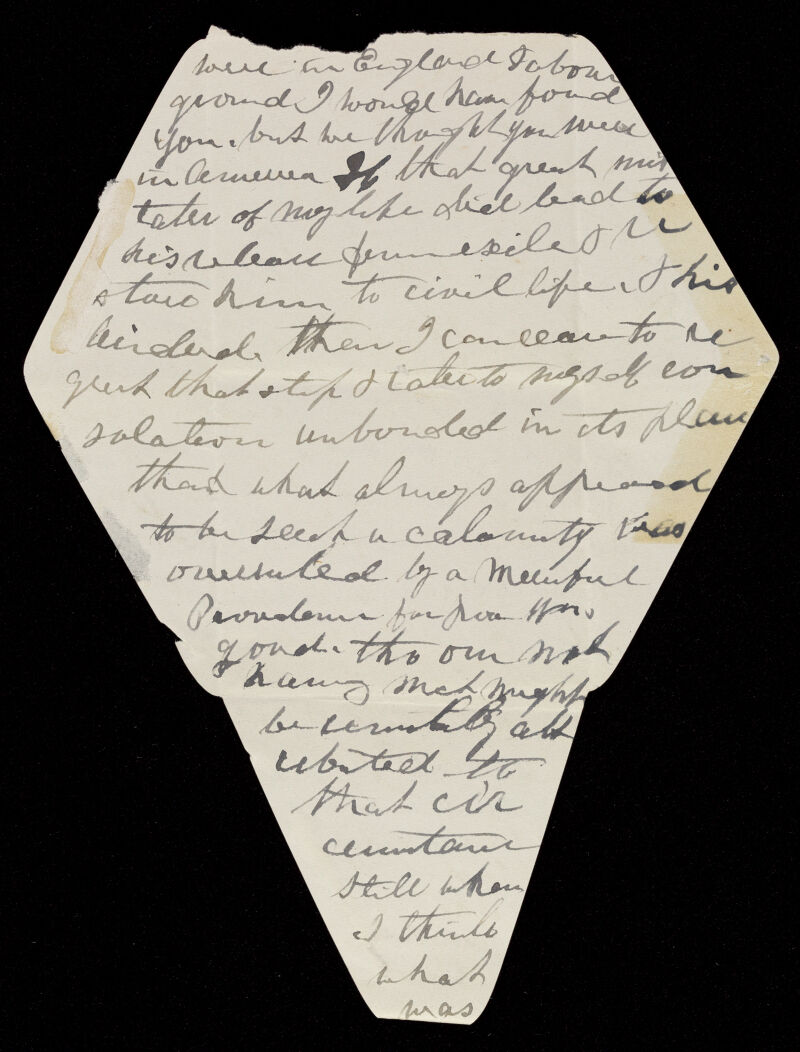 were in England & abou
ground I would have found
you. but we thought you were
in America If that great mis
take of my life did lead to
his release from exile & re
store him to civil life, & his
kindred. then I can cease to re
gret that step & take to myself con
solation unbonded in its plan
that what always appeared
to be such a calamity was
overruled by a Merciful
Providence for
good. tho our not
having met might
be remotely att
ributed to
that cir
cumstance
still when
I think
what
was